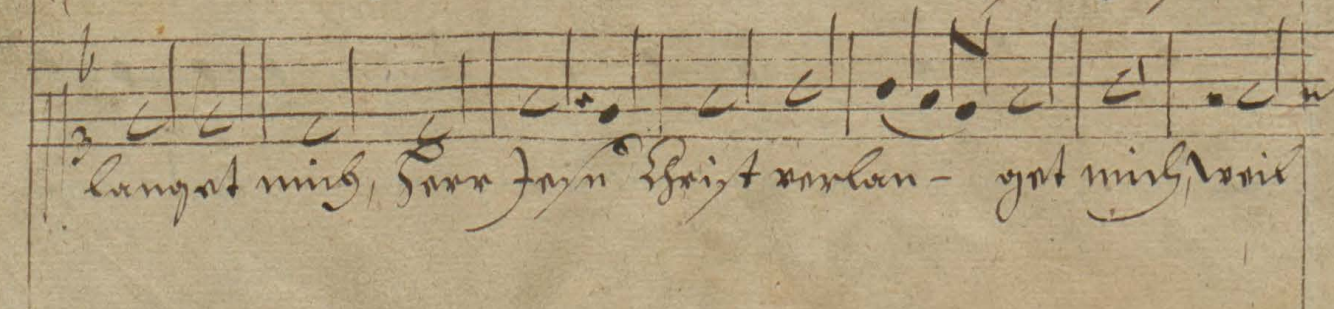 langet mich, Herr Jesu Christ verlan- get mich, weil